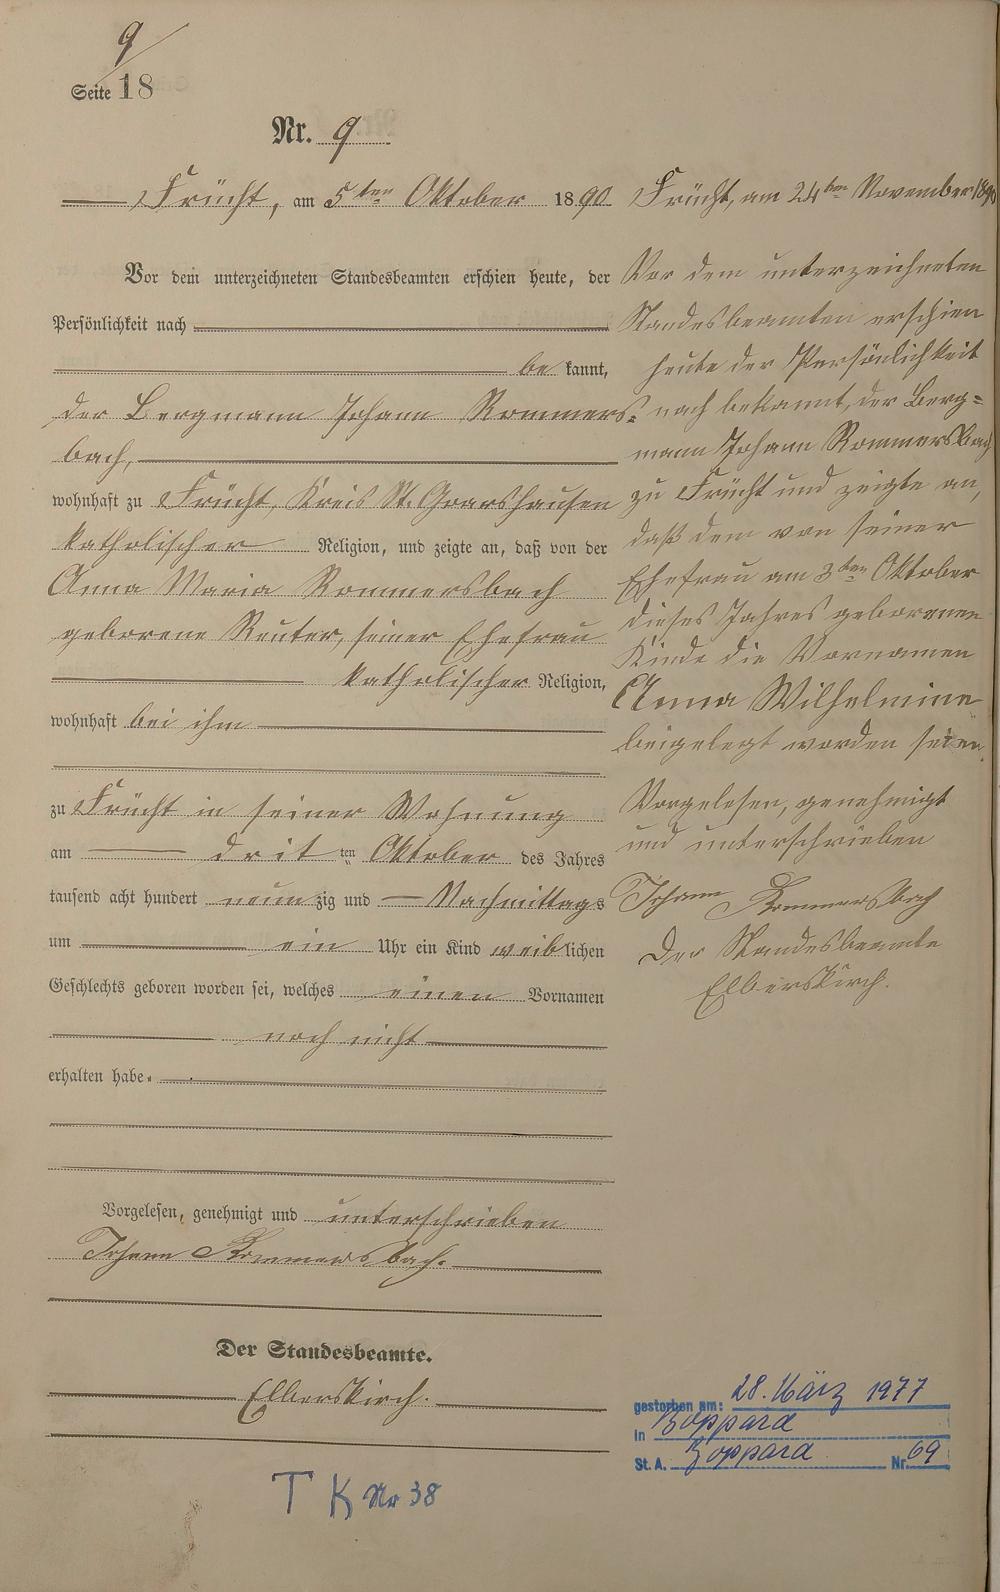 9
Seite 18
Nr. 9
Frücht, am 5ten Oktober 1890
Vor dem unterzeichneten Standesbeamten erschien heute, der
Persönlichkeit nach
be kannt,
der Bergmann Johann Rommers-
bach,
wohnhaft zu Frücht, Kreis St. Goarshausen
katholischer Religion, und zeigte an, daß von der
Anna Maria Rommersbach
geborene Reuter, seiner Ehefrau
katholischer Religion,
wohnhaft bei ihm
zu Frücht in seiner Wohnung
am dritten Oktober des Jahres
tausend acht hundert neunzig und Nachmittags
um ein Uhr ein Kind weiblichen
Geschlechts geboren worden sei, welches einen Vornamen
noch nicht
erhalten habe.
Vorgelesen, genehmigt und unterschrieben
Johann Rommersbach.
Der Standesbeamte.
Elberskirch.
T K Nr 38
Frücht, am 24ten November 1890
Vor dem unterzeichneten
Standesbeamten erschien
heute der Persönlichkeit
nach bekannt, der Berg=
mann Johann Rommersbach
zu Frücht und zeigte an,
daß dem von seiner
Ehefrau am 3ten Oktober
dieses Jahres geborenen
Kinde die Vornamen
Anna Wilhelmine
beigelegt worden seien.
Vorgelesen, genehmigt
und unterschrieben
Johann Rommersbach
Der Standesbeamte
Elberskirch.
gestorben am: 28. März 1977
in Boppard
St. A. Boppard Nr. 69